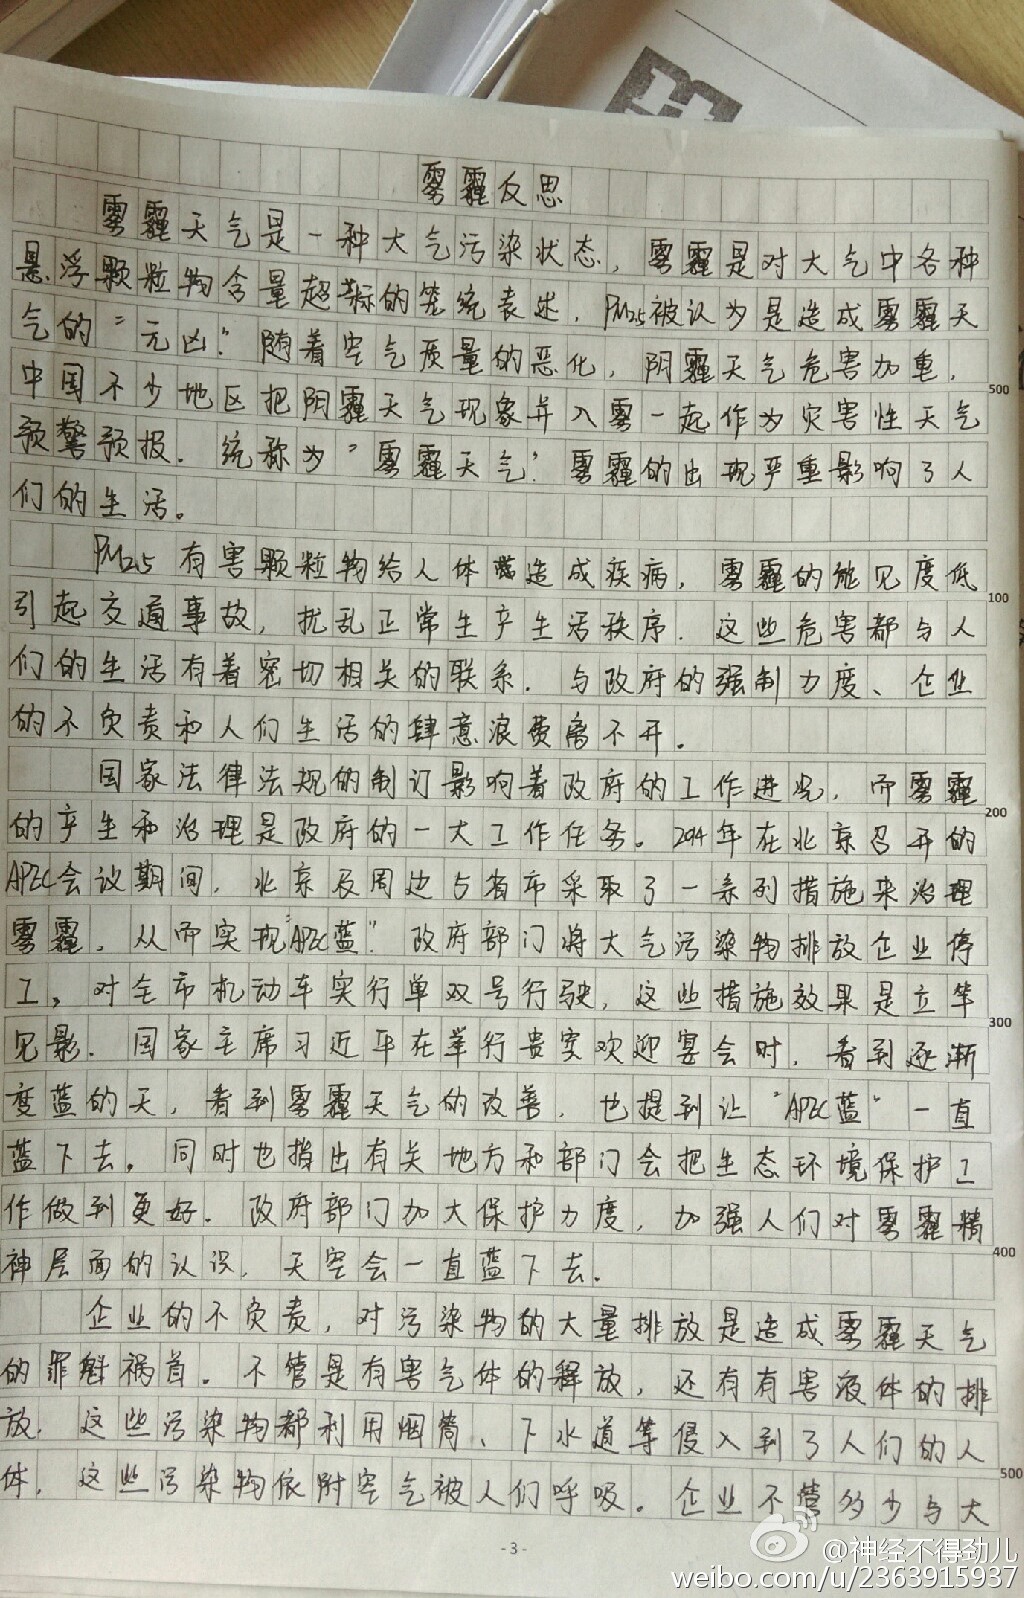 雾霾反思
雾霾天气是一种大气污染状态，雾霾是对大气中各种
悬浮颗粒物含量超标的笼统表述，PM2.5被认为是造成雾霾天
气的“元凶”。随着空气质量的恶化，阴霾天气危害加重，
中国不少地区把阴霾天气现象并入雾一起作为灾害性天气
500
预警预报．统称为“雾霾天气”．雾霾的出现严重影响了人
们的生活。
PM2.5有害颗粒物给人体造成疾病，雾霾的能见度低
100
引起交通事故，扰乱正常生产生活秩序．这些危害都与人
们的生活有着密切相关的联系．与政府的强制力度、企业
的不负责和人们生活的肆意浪费离不开．
国家法律法规的制订影响着政府的工作进况，而雾霾
200
的产生和治理是政府的一大工作任务。2014年在北京召开的
APEC会议期间，北京及周边5省市采取了一系列措施来治理
雾霾，从而实现“APEC蓝”．政府部门将大气污染物排放企业停
工，对全市机动车实行单双号行驶，这些措施效果是立竿
300
见影．国家主席习近平在举行贵宾欢迎宴会时，看到逐渐
变蓝的天，看到雾霾天气的改善，也提到让“APEC蓝”一直
蓝下去．同时也指出有关地方和部门会把生态环境保护工
作做到更好．政府部门加大保护力度，加强人们对雾霾精
400
神层面的认识，天空会一直蓝下去．
企业的不负责，对污染物的大量排放是造成雾霾天气
的罪魁祸首。不管是有害气体的释放，还有有害液体的排
放．这些污染物都利用烟筒、下水道等侵入到了人们的人
500
体．这些污染物依附空气被人们呼吸。企业不管多少与大
-3-
@神经不得劲儿
weibo.com/u/2363915937